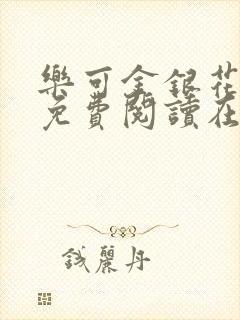 樂可金銀花
免費閱讀在
錢麗丹